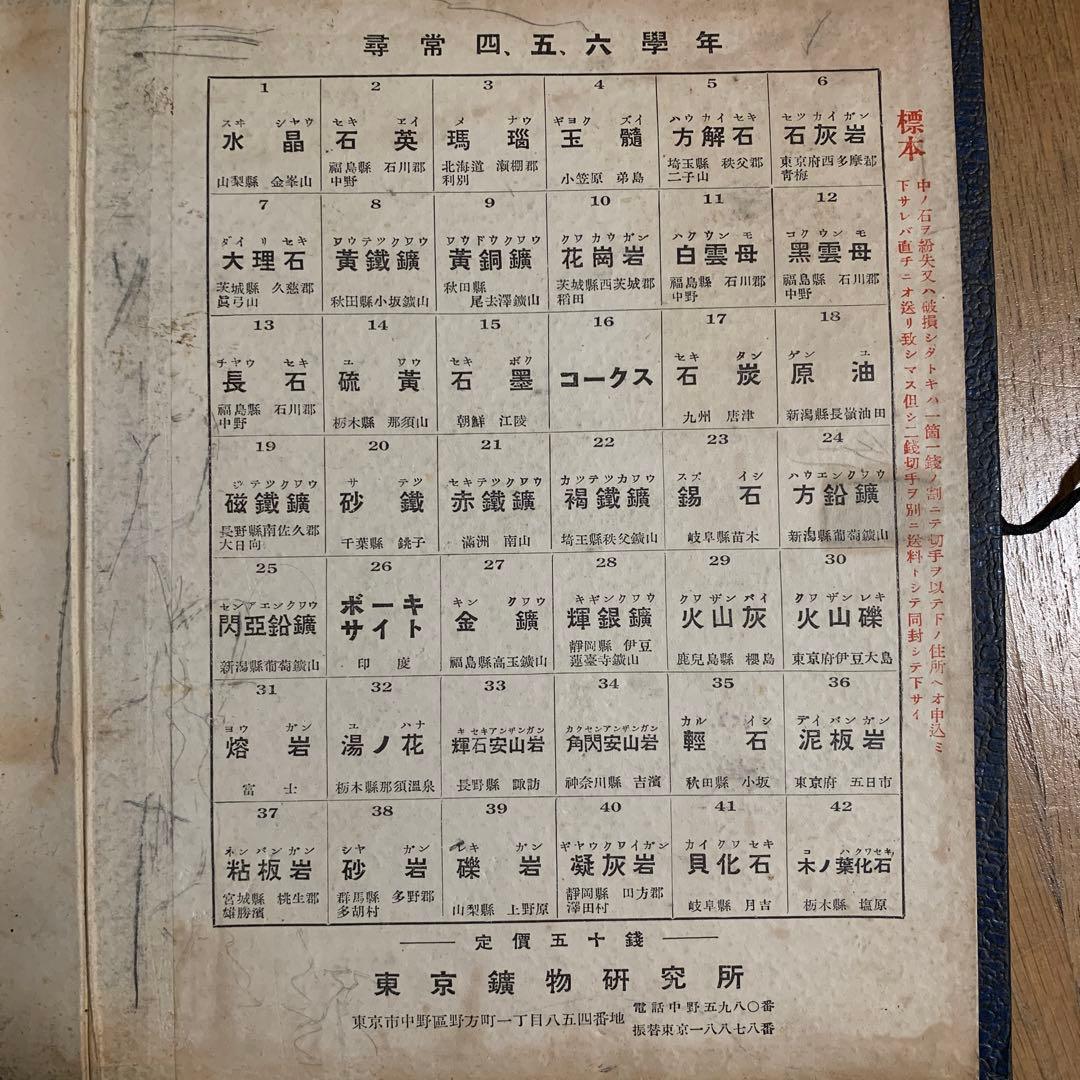 尋常四、五、六學年
1
スヰ シヤウ
水晶
山梨縣 金峯山
2
セキ エイ
石英
福島縣 石川郡
中野
3
メ ナウ
瑪瑙
北海道 瀬棚郡
利別
4
ギヨク ズイ
玉髓
小笠原 弟島
5
ハウカイセキ
方解石
埼玉縣 秩父郡
二子山
6
セツカイガン
石灰岩
東京府西多摩郡
青梅
7
ダイリセキ
大理石
茨城縣 久慈郡
眞弓山
8
ワウテツクワウ
黃鐵鑛
秋田縣小坂鑛山
9
ワウドウクワウ
黃銅鑛
秋田縣
尾去澤鑛山
10
クワカウガン
花崗岩
茨城縣西茨城郡
稻田
11
ハクウンモ
白雲母
福島縣 石川郡
中野
12
コクウンモ
黑雲母
福島縣 石川郡
中野
13
チヤウ セキ
長石
福島縣 石川郡
中野
14
ユ ワウ
硫黃
栃木縣 那須山
15
セキ ボク
石墨
朝鮮 江陵
16
コークス
17
セキ タン
石炭
九州 唐津
18
ゲン ユ
原油
新潟縣長嶺油田
19
ジテツクワウ
磁鐵鑛
長野縣南佐久郡
大日向
20
サ テツ
砂鐵
千葉縣 銚子
21
セキテツクワウ
赤鐵鑛
滿洲 南山
22
カツテツカワウ
褐鐵鑛
埼玉縣秩父鑛山
23
スズ イシ
錫石
岐阜縣苗木
24
ハウエンクワウ
方鉛鑛
新潟縣葡萄鑛山
25
センアエンクワウ
閃亞鉛鑛
新潟縣葡萄鑛山
26
ボーキ
サイト
印度
27
キン クワウ
金鑛
福島縣高玉鑛山
28
キギンクワウ
輝銀鑛
靜岡縣 伊豆
蓮臺寺鑛山
29
クワザンバイ
火山灰
鹿兒島縣 櫻島
30
クワザンレキ
火山礫
東京府伊豆大島
31
ヨウ ガン
熔岩
富士
32
ユ ハナ
湯ノ花
栃木縣那須溫泉
33
キセキアンザンガン
輝石安山岩
長野縣 諏訪
34
カクセンアンザンガン
角閃安山岩
神奈川縣 吉濱
35
カル イシ
輕石
秋田縣 小坂
36
デイバンガン
泥板岩
東京府 五日市
37
ネンバンガン
粘板岩
宮城縣 桃生郡
雄勝濱
38
シヤ ガン
砂岩
群馬縣 多野郡
多胡村
39
レキ ガン
礫岩
山梨縣 上野原
40
ギヤウクワイガン
凝灰岩
靜岡縣 田方郡
澤田村
41
カイクワセキ
貝化石
岐阜縣 月吉
42
コ ハクワセキ
木ノ葉化石
栃木縣 塩原
標本
中ノ石ヲ紛失又ハ破損シタトキハ一箇一錢ノ割ニテ切手ヲ以テ下ノ住所ヘオ申込ミ
下サレバ直チニオ送リ致シマス但シ二錢切手ヲ別ニ送料トシテ同封シテ下サイ
定價五十錢
東京鑛物硏究所
東京市中野區野方町一丁目八五四番地
電話中野五九八〇番
振替東京一八八七八番